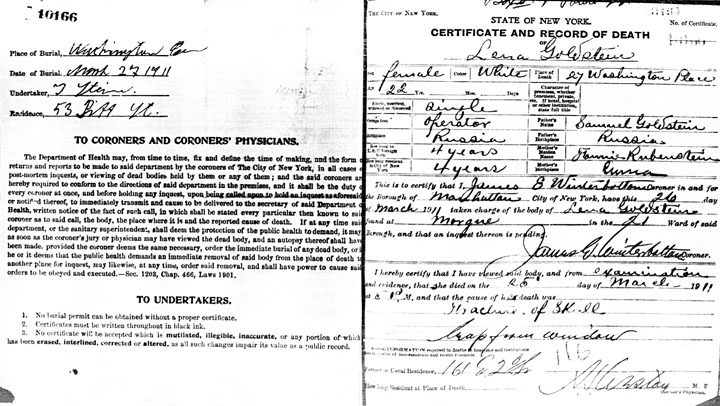 10166
Place of Burial, Washington Cem
Date of Burial, March 27 1911
Undertaker, J Stern
Residence, 53 Pitt St.
TO CORONERS AND CORONERS' PHYSICIANS.
The Department of Health may, from time to time, fix and define the time of making, and the form
returns and reports to be made to said department by the coroners of The City of New York, in all cases
post-mortem inquests, or viewing of dead bodies held by them or any of them; and the said coroners
hereby required to conform to the directions of said department in the premises, and it shall be the duty
every coroner at once, and before holding any inquest, upon being called upon to hold an inquest as aforesaid
or notified thereof, to immediately transmit and cause to be delivered to the secretary of said Department
Health, written notice of the fact of such call, in which shall be stated every particular then known to said
coroner as to said call, the body, the place where it is and the reported cause of death. If at any time said
department, or the sanitary superintendent, shall deem the protection of the public health to demand, it may
as soon as the coroner's jury or physician may have viewed the dead body, and an autopsy thereof shall have
been made, provided the coroner deems the same necessary, order the immediate burial of any dead body, or
he or it deems that the public health demands an immediate removal of said body from the place of death to
another place for inquest, may likewise, at any time, order said removal, and shall have power to cause said
orders to be obeyed and executed.—Sec. 1203, Chap. 466, Laws 1901.
TO UNDERTAKERS.
1. No burial permit can be obtained without a proper certificate.
2. Certificates must be written throughout in black ink.
3. No certificate will be accepted which is mutilated, illegible, inaccurate, or any portion of which
has been erased, interlined, corrected or altered, as all such changes impair its value as a public record.
THE CITY OF NEW YORK.
STATE OF NEW YORK.
No. of Certificate,
CERTIFICATE AND RECORD OF DEATH
OF
Lena Goldstein
Sex female Color White Place of Death 27 Washington Place
Age 22 Yrs. Mos. Days
Character of premises, whether tenement, private, etc. If hotel, hospital or other institution, state full title
Single, married, widowed or divorced Single
Occupation operator Father's Name Samuel Goldstein
Birthplace Russia Father's Birthplace Russia
How long in U.S. if foreign born 4 years Mother's Maiden Name Fannie Rubenstein
How long resident in City of New York 4 years Mother's Birthplace
This is to certify that I, James E Winterbottom Coroner in and for
the Borough of Manhattan City of New York, have this 26 day
of March 1911 taken charge of the body of Lena Goldstein
found at Morgue in the Ward of said
Borough, and that an inquest thereon is pending.
James E Winterbottom Coroner.
I hereby certify that I have viewed said body, and from examination
and evidence, that she died on the 25 day of March 1911
at M, and that the cause of her death was
Fracture of Skull
leap from window
116
Former or Usual Residence, 161 E 2 St
How long Resident at Place of Death,
Coroner's Physician.